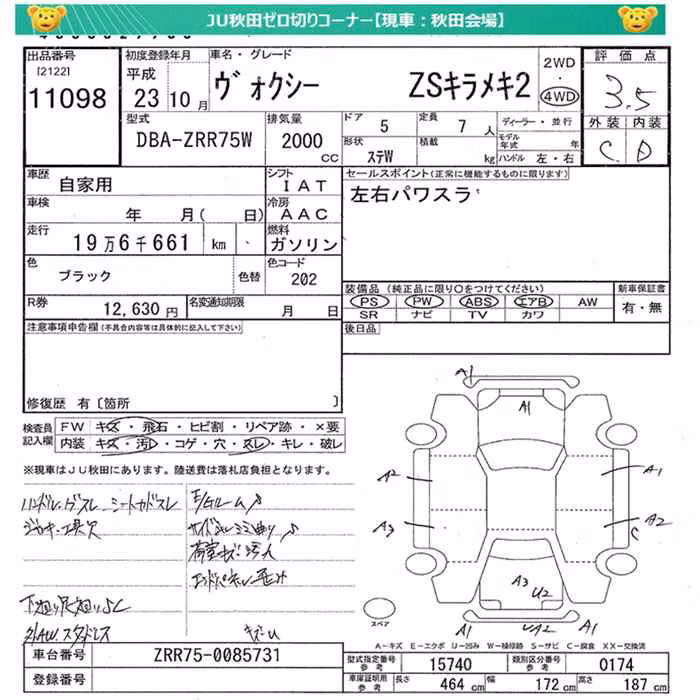 JU秋田ゼロ切りコーナー【現車：秋田会場】
出品番号
[2122]
11098
初度登録年月
平成
23 10 月
車名・グレード
ヴォクシー ZSキラメキ2
2WD
・
4WD
評価点
3.5
外装 内装
C D
型式
DBA-ZRR75W
排気量
2000
CC
ドア 5
定員 7 人
形状 ステW
積載 kg
ディーラー・並行
モデル年式 年
ハンドル 左・右
車歴
自家用
シフト
IAT
セールスポイント(正常に機能するものに限ります)
左右パワスラ
車検
年 月( 日)
冷房
AAC
走行
19万6千661 km
燃料
ガソリン
色
ブラック
色替
色コード
202
装備品（純正品に限り○をつけてください）
PS PW ABS エアB AW
SR ナビ TV カワ
新車保証書
有・無
R券
12,630 円
名変通知期限
月 日
後日品
注意事項申告欄(不具合内容等は具体的に記入して下さい)
修復歴 有〔箇所 〕
検査員
記入欄
FW キズ・飛石・ヒビ割・リペア跡・×要
内装 キズ・汚れ・コゲ・穴・スレ・キレ・破レ
※現車はJU秋田にあります。陸送費は落札店負担となります。
ハンドル
シート
ジャッキ 工具欠
荷室キズ汚れ
スタッドレス
A1
A1
A2
A1
A3
A2
C
A3
U2
A1
A1
スペア
A－キズ E－エクボ U－凹み W－補修跡 S－サビ C－腐食 XX－交換済
車台番号
ZRR75-0085731
登録番号
型式指定番号
参考
15740
類別区分番号
参考
0174
車庫証明用
参考
長さ 464 cm
幅 172 cm
高さ 187 cm